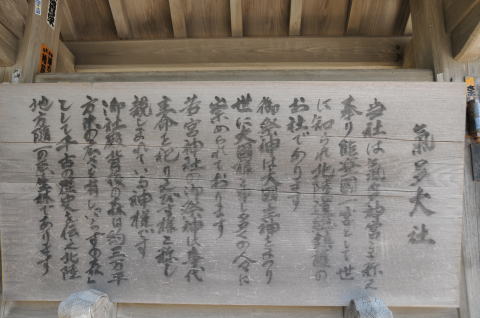 氣多大社
当社は氣多神宮とも称え
奉り能登國一宮として世
に知られ北陸道総鎮護の
お社であります
御祭神は大国主神とまつり
世に大国様と
崇められて
若宮神社の御祭神は事代
主命を祀りえびす様と称し
親しまれている神様です
御社殿背後の森は約三万平
方米の
として千古の歴史を伝え北陸
地方随一の原生林であります